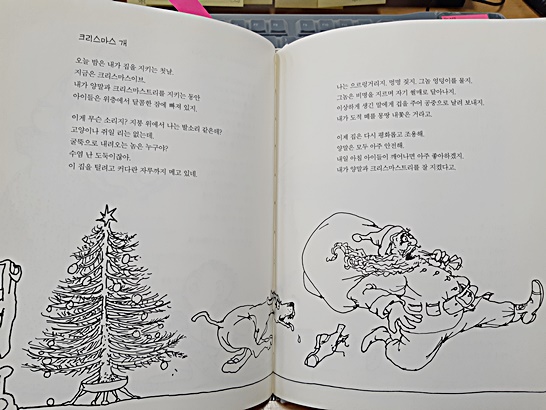 크리스마스 개
오늘 밤은 내가 집을 지키는 첫날.
지금은 크리스마스이브.
내가 양말과 크리스마스트리를 지키는 동안
아이들은 위층에서 달콤한 잠에 빠져 있지.
이게 무슨 소리지? 지붕 위에서 나는 발소리 같은데?
고양이나 쥐일 리는 없는데.
굴뚝으로 내려오는 놈은 누구야?
수염 난 도둑이잖아.
이 집을 털려고 커다란 자루까지 메고 있네.
나는 으르렁거리지. 멍멍 짖지. 그놈 엉덩이를 물지.
그놈은 비명을 지르며 자기 썰매로 달아나지.
이상하게 생긴 말에게 짐을 주어 공중으로 날려 보내지.
내가 도적 떼를 몽땅 내쫓은 거라고.
이제 집은 다시 평화롭고 조용해.
양말은 모두 아주 안전해.
내일 아침 아이들이 깨어나면 아주 좋아하겠지.
내가 양말과 크리스마스트리를 잘 지켰다고.